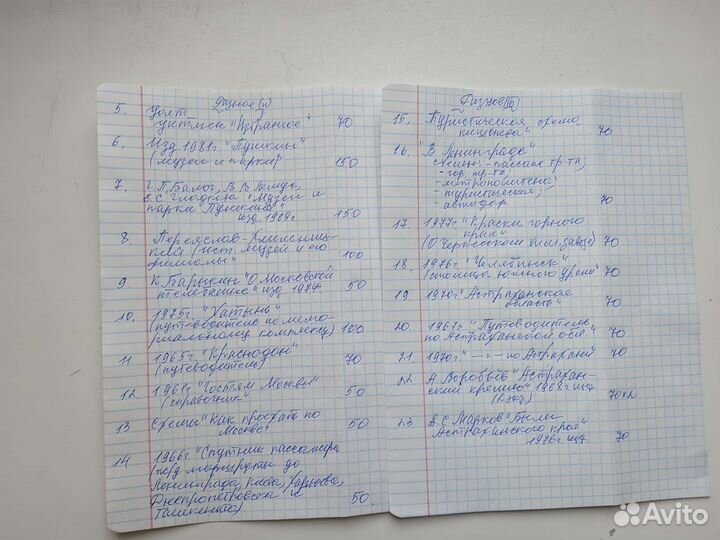 Разное (II)
5. Уолт
Уитмен "Избранное" 70
6. Изд 1981г. "Пушкин"
(музеи и парки) 150
7. Г. П. Балог, В. В. Лемус,
"Музеи и
парки Пушкина"
изд. 1969г. 150
8. Переяслав-Хмельниц-
кий (ист. музей и его
филиалы" 100
9. К. Барыкин "О Московской
изд. 1974 50
10. 1975г. "Хатынь"
(путеводитель по мемо-
риальному комплексу) 100
11. 1965г. "Краснодон"
(путеводитель) 70
12. 1961г. "Гостям Москвы"
(справочник" 50
13 Схемы "Как проехать по
Москве" 50
14 1966г. "Спутник пассажира
(ж/д маршруты до
Ленинграда, Киева, Харькова,
Днепропетровска и
50
Разное (III)
15. Туристическая схема
Кишинёва" 70
16. "В Ленинграде"
схемы: - пассаж. тр-та,
- гор. тр-та,
- метрополитена,
- туристическая,
- автодор. 70
17. 1977г. "Краски горного
края"
(О Черкесском хим. заводе) 70
18. 1976г. "Челябинск"
(столица Южного Урала" 70
19. 1970г. "Астраханская
область" 70
20. 1967г. "Путеводитель
по Астраханской обл." 70
21. 1970г. " — " — по Астрахани 70
22 А. Воробьёв "Астрахан-
ский кремль" 1968г. изд
(2 экз) 70х2
23. А. С. Марков "Были
Астраханского края"
1976г. изд. 70
Avito